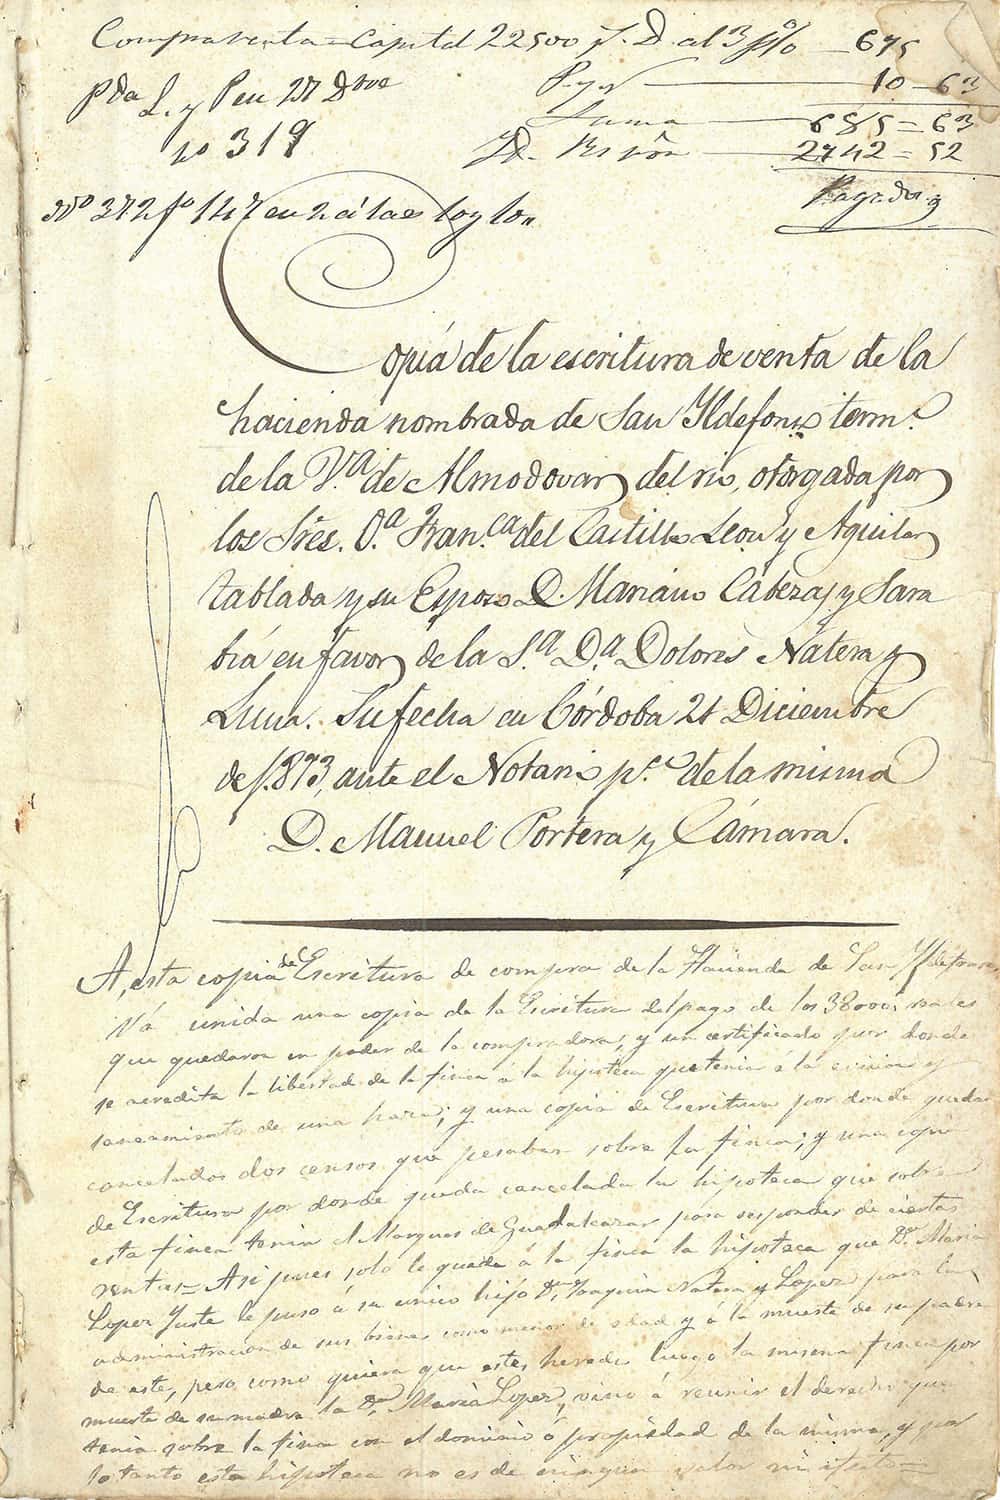 Compraventa = Capital 22500 p. D. al 3 p% — 675
Pda L. y P en 27 Dbre — 10 = 63
nº 319 Suma — 685 = 63
2742 = 52
Nº 372 fº 147 en Pagado
Copia de la escritura de venta de la
hacienda nombrada de San Yldefonso term.º
de la V.ª de Almodovar del rio, otorgada por
los Sres. D.ª Fran.ca del Castillo Leon y Aguilar
tablada y su Esposo D. Mariano Cabezas y Sara
bia en favor de la S.ª D.ª Dolores Natera y
Luna. Su fecha en Córdoba 21 Diciembre
de 1.873, ante el Notario p.co de la misma
D. Manuel Portera y Cámara.
A, esta copia de Escritura de compra de la Hacienda de San Yldefonso
Vá unida una copia de la Escritura del pago de los 38000 reales
que quedaron en poder de la compradora, y un certificado por donde
se acredita la libertad de la finca á la hipoteca que tenia á la eviccion y
saneamiento de una haza; y una copia de Escritura por donde quedan
cancelados dos censos que pesaban sobre la finca; y una copia
de Escritura por donde queda cancelada la hipoteca que sobre
esta finca tenia el Marques de Guadalcazar para responder de ciertas
rentas = Asi pues solo le queda á la finca la hipoteca que D.ª Maria
Lopez Yuste le puso á su unico hijo Dn Joaquin Natera y Lopez para la
administracion de sus bienes como menor de edad y á la muerte de su padre
de este, pero como quiera que este heredo luego la misma finca por
muerte de su madre la D.ª Maria Lopez, vino á reunir el derecho que
tenia sobre la finca con el dominio ó propiedad de la misma, y por
lo tanto esta hipoteca no es de ningun valor ni efecto =